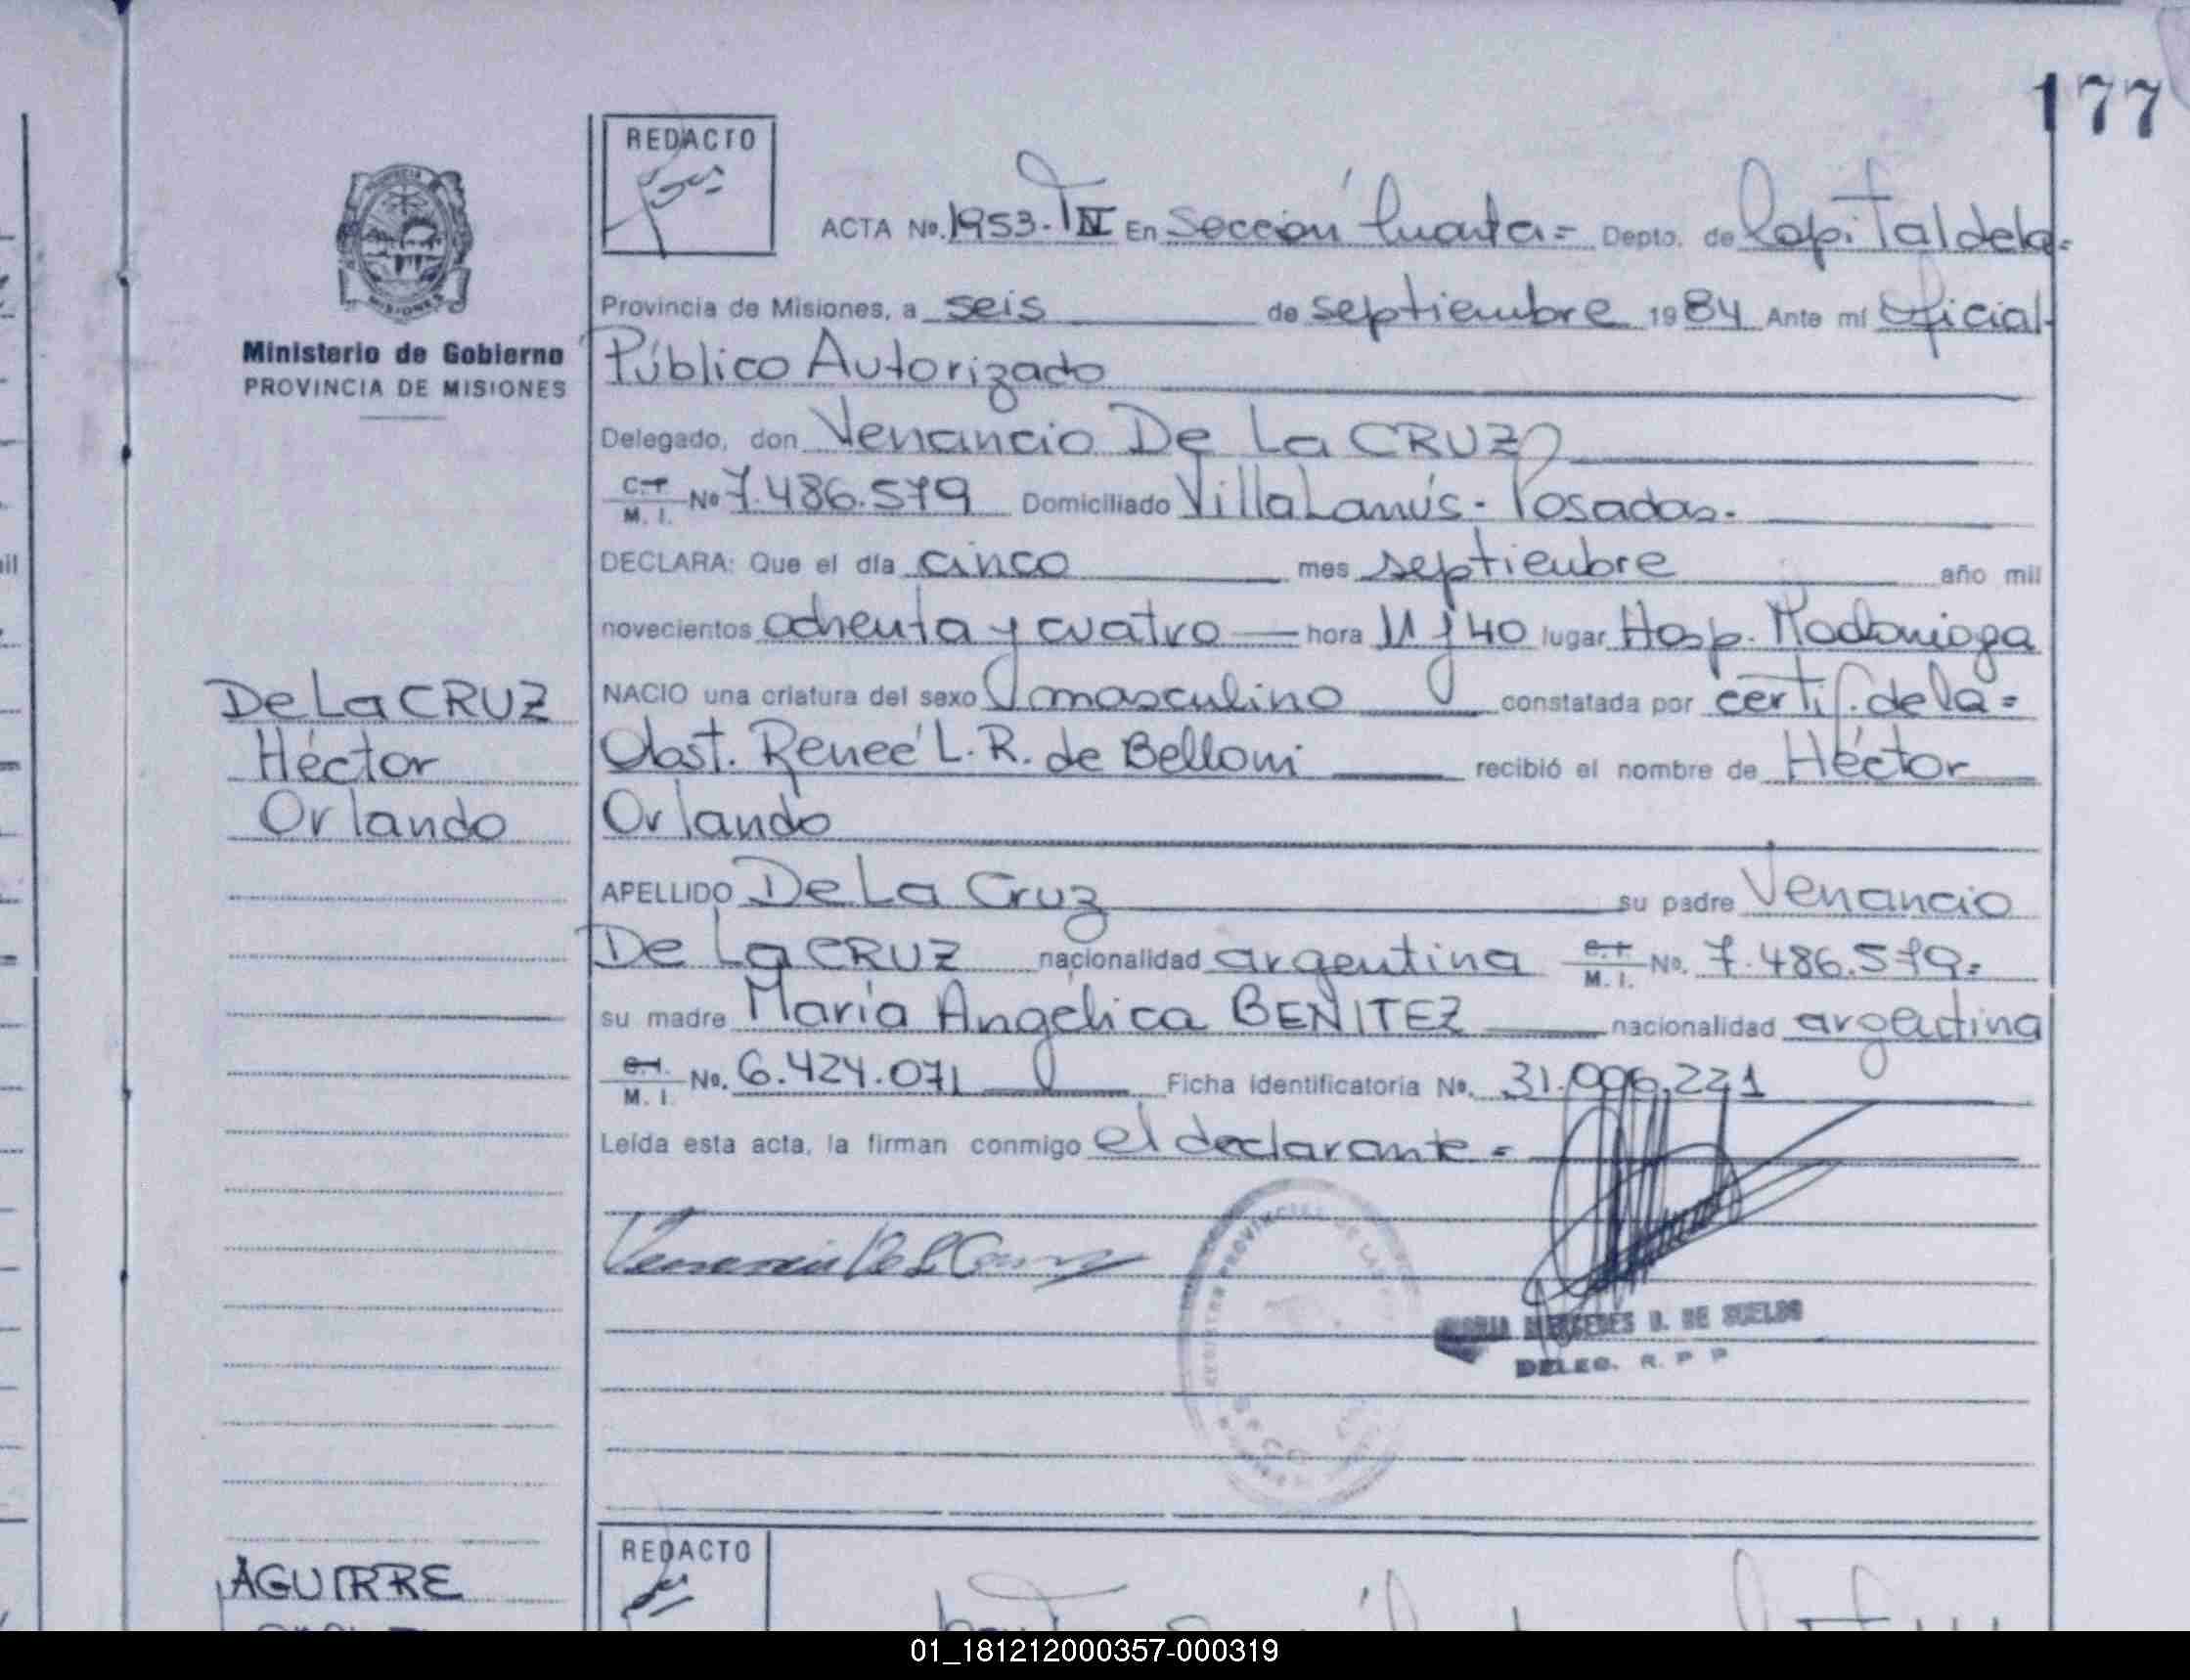 177
REDACTO
ACTA No. 1953. T IV En Sección Cuarta= Depto. de Capital de la=
Provincia de Misiones, a seis de septiembre 1984 Ante mí Oficial
Ministerio de Gobierno
PROVINCIA DE MISIONES
Público Autorizado
Delegado, don Venancio De La CRUZ
C.I. M. I. No 7.486.579 Domiciliado Villa Lanús - Posadas.
DECLARA: Que el día cinco mes septiembre año mil
novecientos ochenta y cuatro hora 11 y 40 lugar Hosp. Madariaga
NACIO una criatura del sexo masculino constatada por certif. de la=
Obst. Reneé L. R. de Belloni recibió el nombre de Héctor
Orlando
De La CRUZ
Héctor
Orlando
APELLIDO De La Cruz su padre Venancio
De La CRUZ nacionalidad argentina C.I. M. I. No. 7.486.579=
su madre María Angélica BENITEZ nacionalidad argentina
C.I. M. I. No. 6.424.071 Ficha identificatoria No. 31.096.221
Leída esta acta, la firman conmigo el declarante =
Venancio De L Cruz
MERCEDES D. DE SUELDO
DELEG. R. P P
REGISTRO PROVINCIAL DE LAS
REDACTO
AGUIRRE
01_181212000357-000319